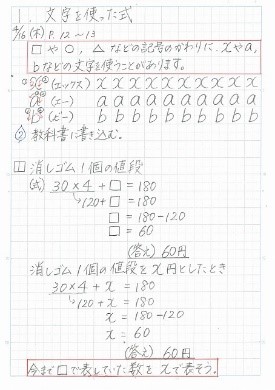 1. 文字を使った式
4/16(木) P.12〜13
□や○, △などの記号のかわりに、xやa,
bなどの文字を使うことがあります。
(エックス) x x x x x x x x x
(エー) a a a a a a a a a
(ビー) b b b b b b b b b
教科書に書き込む。
1 消しゴム1個の値段
(式) 30×4+□=180
120+□=180
□=180-120
□=60
(答え) 60円
消しゴム1個の値段をx円としたとき
30×4+x=180
120+x=180
x=180-120
x=60
(答え) 60円
今まで□で表していた数をxで表そう。